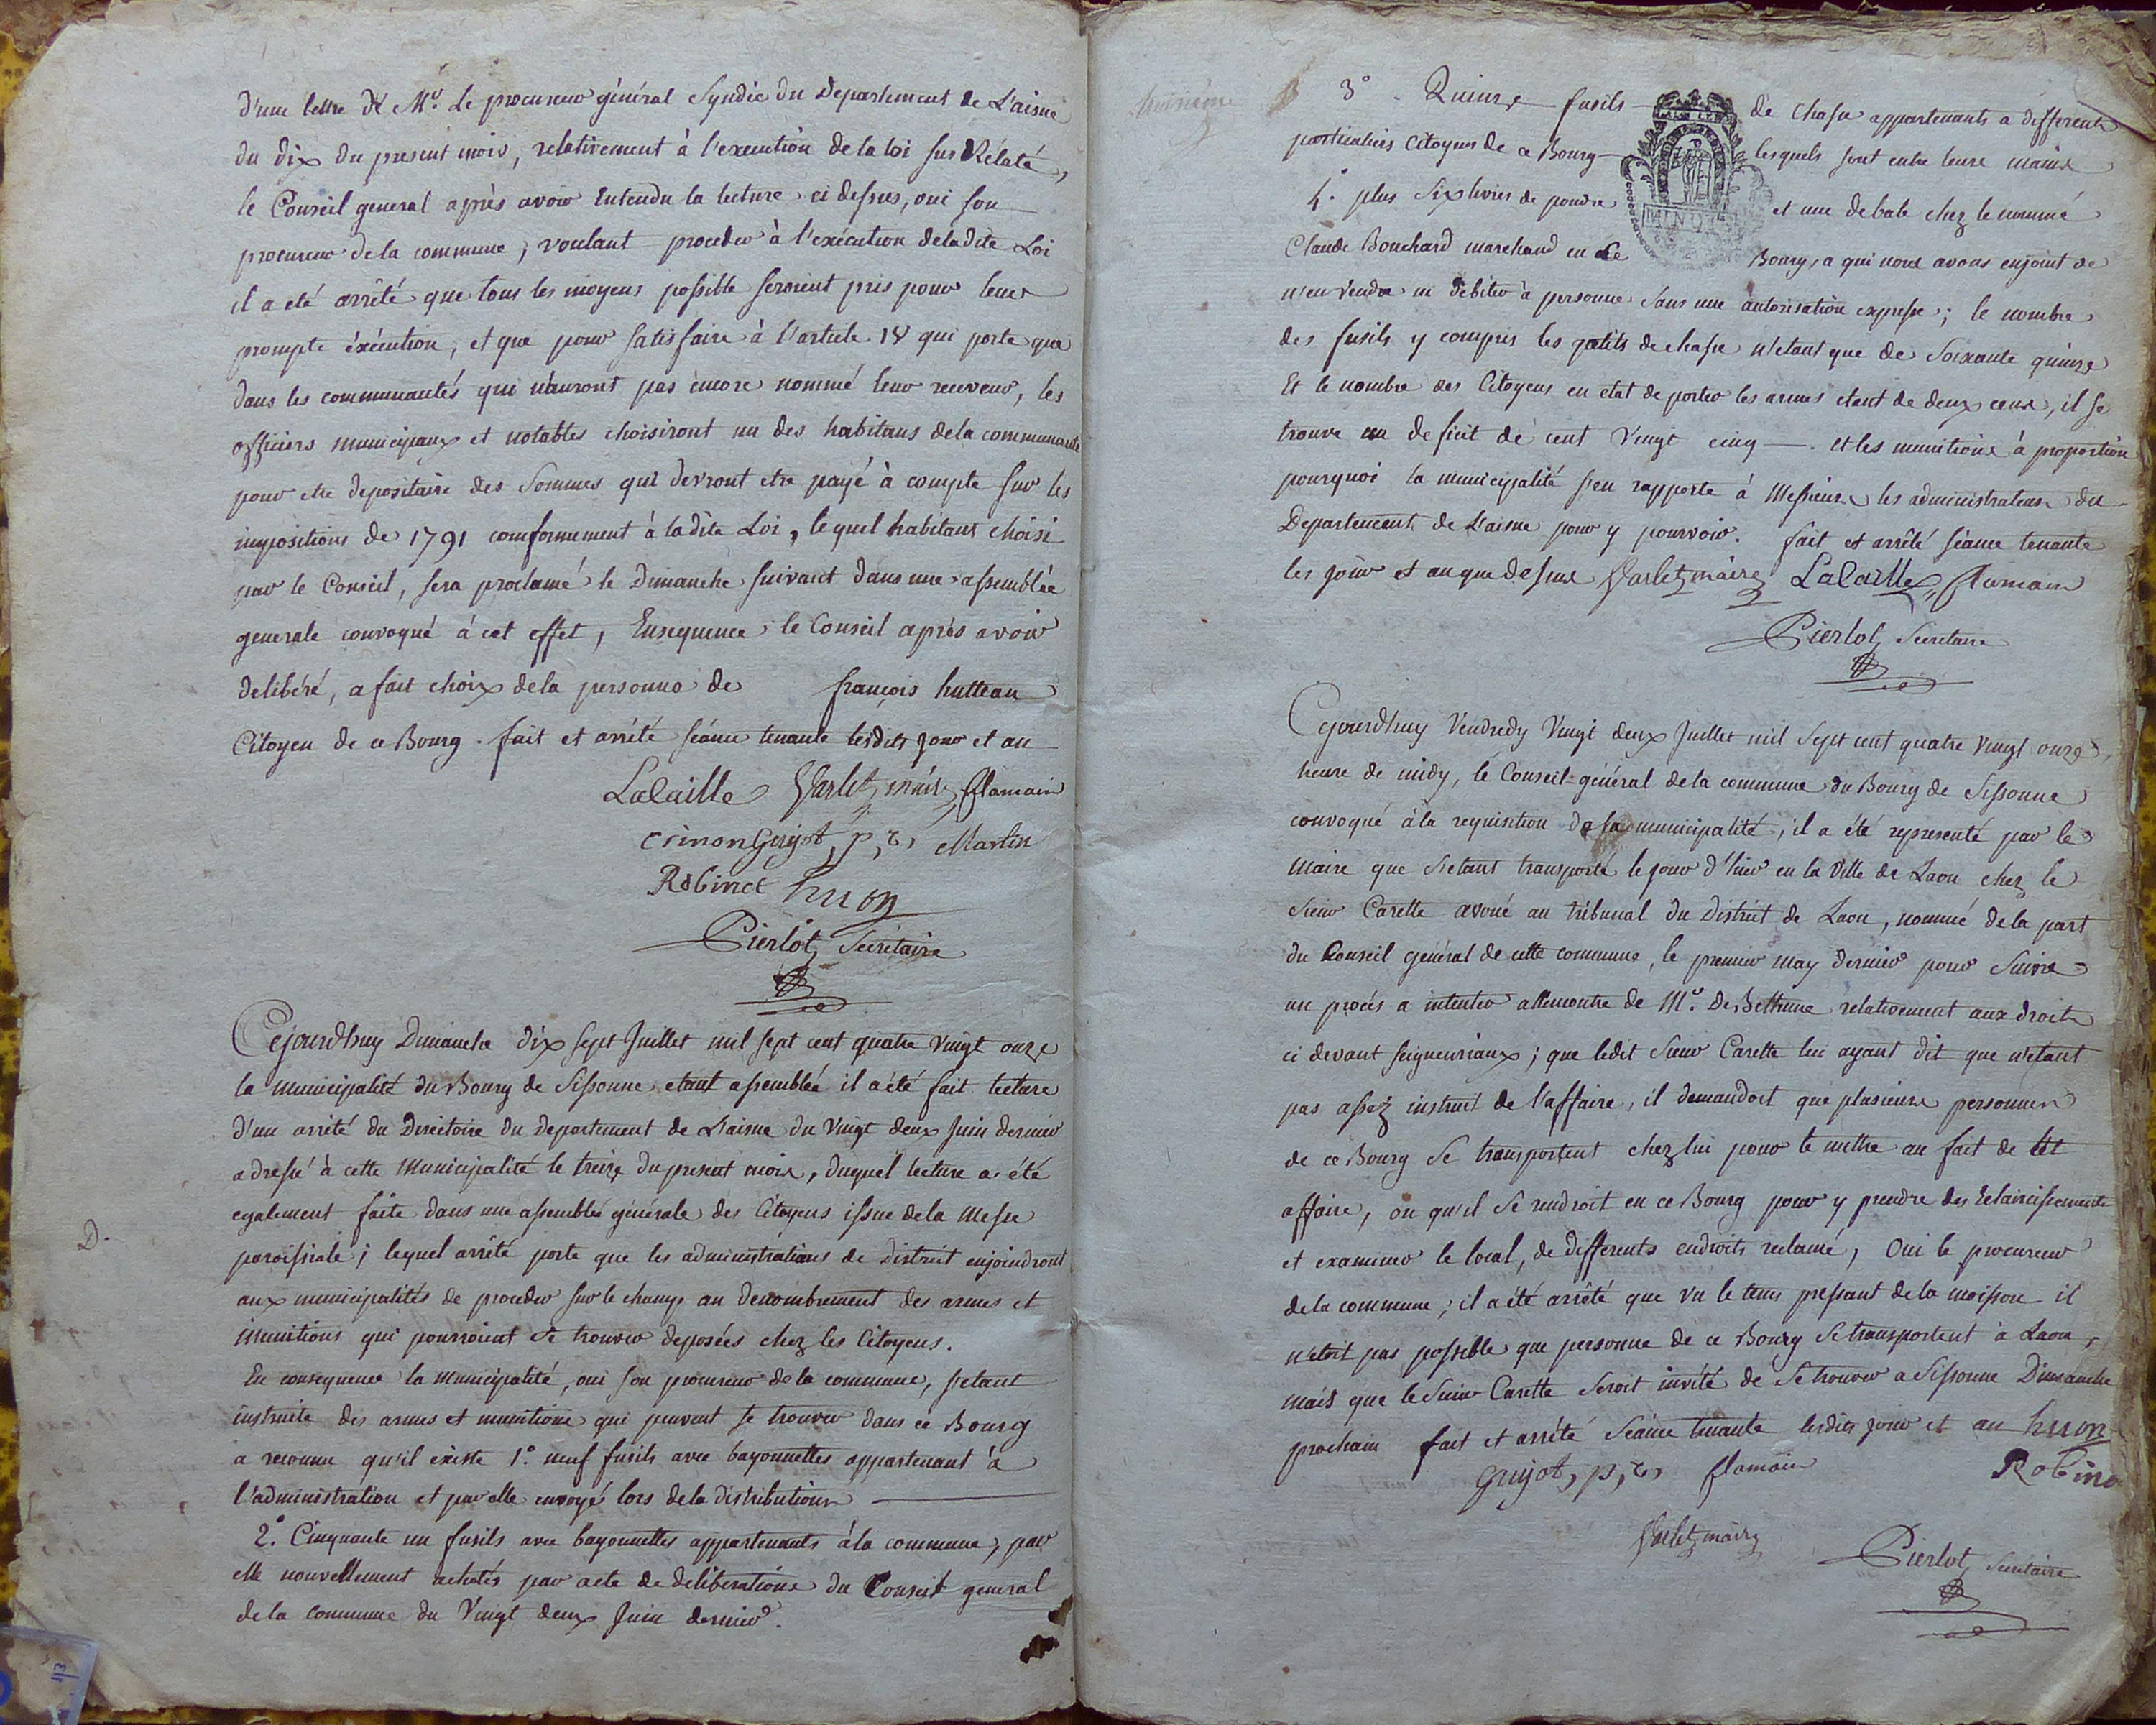 d'une lettre de Mr. Le procureur général Syndic du Departement de L'aisne
du dix du present mois, relativement à l'execution de la loi sus Rélaté,
le Conseil général après avoir Entendu la lecture ci dessus, oui son
procureur de la commune, voulant proceder à l'exécution de ladite Loi
il a été arrêté que tous les moyens possible seroient pris pour leur
prompte éxécution, et que pour satisfaire à l'article 18 qui porte que
dans les communautés qui n'auront pas encore nommé leur receveur, les
officiers municipaux et notables choisiront un des habitans de la communauté
pour etre depositaire des Sommes qui devront etre payé à compte sur les
impositions de 1791 conformement à la dite Loi, lequel habitant choisi
par le Conseil, sera proclamé le Dimanche suivant dans une assemblée
generale convoqué à cet effet, Ensequence le Conseil après avoir
delibéré, a fait choix de la personne de françois hutteau
Citoyen de ce Bourg. fait et arrété séance tenante lesdits jour et an
Lalaille Varlet maire flamain
crinon Guyot, p, c, Martin
Robinet huon
Pierlot Secrétaire
Cejourdhuy Dimanche dix sept Juillet mil sept cent quatre vingt onze
la municipalité du Bourg de Sissonne etant assemblée il a été fait lecture
d'un arrêté du Directoire du departement de L'aisne du vingt deux Juin dernier
adressé à cette Municipalité le treize du present mois, duquel lecture a été
egalement faite dans une assemblée générale des Citoyens issue de la Messe
D.
paroissiale; lequel arrêté porte que les administrations de District enjoindront
aux municipalités de proceder sur le champ au denombrement des armes et
munitions qui pourroient se trouver deposées chez les Citoyens.
En consequence la municipalité, oui son procureur de la commune, s'etant
instruite des armes et munitions qui peuvent se trouver dans ce Bourg
a reconnu qu'il existe 1.° neuf fusils avec bayonnettes appartenant à
l'administration et par elle envoyé lors de la distribution
2.° Cinquante un fusils avec bayonnettes appartenants à la commune, par
elle nouvellement achetés par acte de deliberations du Conseil general
de la commune du Vingt deux Juin dernier.
huitième
3.° Quinze fusils de chasse appartenants a differents
particuliers Citoyens de ce Bourg lesquels sont entre leurs mains
4.° plus Six livres de poudre et une de bale chez le nommé
Claude Bouchard marchand en ce Bourg, a qui nous avons enjoint de
n'en vendre ni debiter à personne sans une autorisation expresse; le nombre
des fusils y compris les petits de chasse n'etant que de Soixante quinze
Et le nombre des Citoyens en etat de porter les armes etant de deux cens, il se
trouve un deficit de cent Vingt cinq et les munitions à proportion
pourquoi la municipalité s'en rapporte à Messieurs les administrateurs du
Departement de L'aisne pour y pourvoir. fait et arrêté séance tenante
les jour et an que dessus Varlet maire Lalaille, flamain
Pierlot Secretaire
Cejourdhuy Vendredy Vingt deux Juillet mil Sept cent quatre vingt onze,
heure de midy, le Conseil général de la commune du Bourg de Sissonne
convoqué à la requisition de sa municipalité, il a été representé par le
Maire que s'etant transporté le jour d'hier en la Ville de Laon chez le
Sieur Carette avoué au tribunal du District de Laon, nommé de la part
du Conseil général de cette commune, le premier may dernier pour suivre
un procès a intenter allencontre de Mr. De Bethune relativement aux droits
ci devant seigneuriaux; que ledit Sieur Carette lui ayant dit que n'etant
pas assez instruit de l'affaire, il demandoit que plusieurs personnes
de ce Bourg se transportent chez lui pour le mettre au fait de
affaire, ou qu'il se rendroit en ce Bourg pour y prendre des Eclaircissements
et examiner le local, de differents endroits reclamé, Oui le procureur
de la commune, il a été arrêté que vu le tems pressant de la moisson il
n'etoit pas possible que personne de ce Bourg se transportent à Laon,
mais que le Sieur Carette seroit invité de se trouver a Sissonne Dimanche
prochain fait et arrêté Séance tenante lesdits jour et an huon
Guyot, p, c, flamain Robine
Varlet maire
Pierlot Secretaire